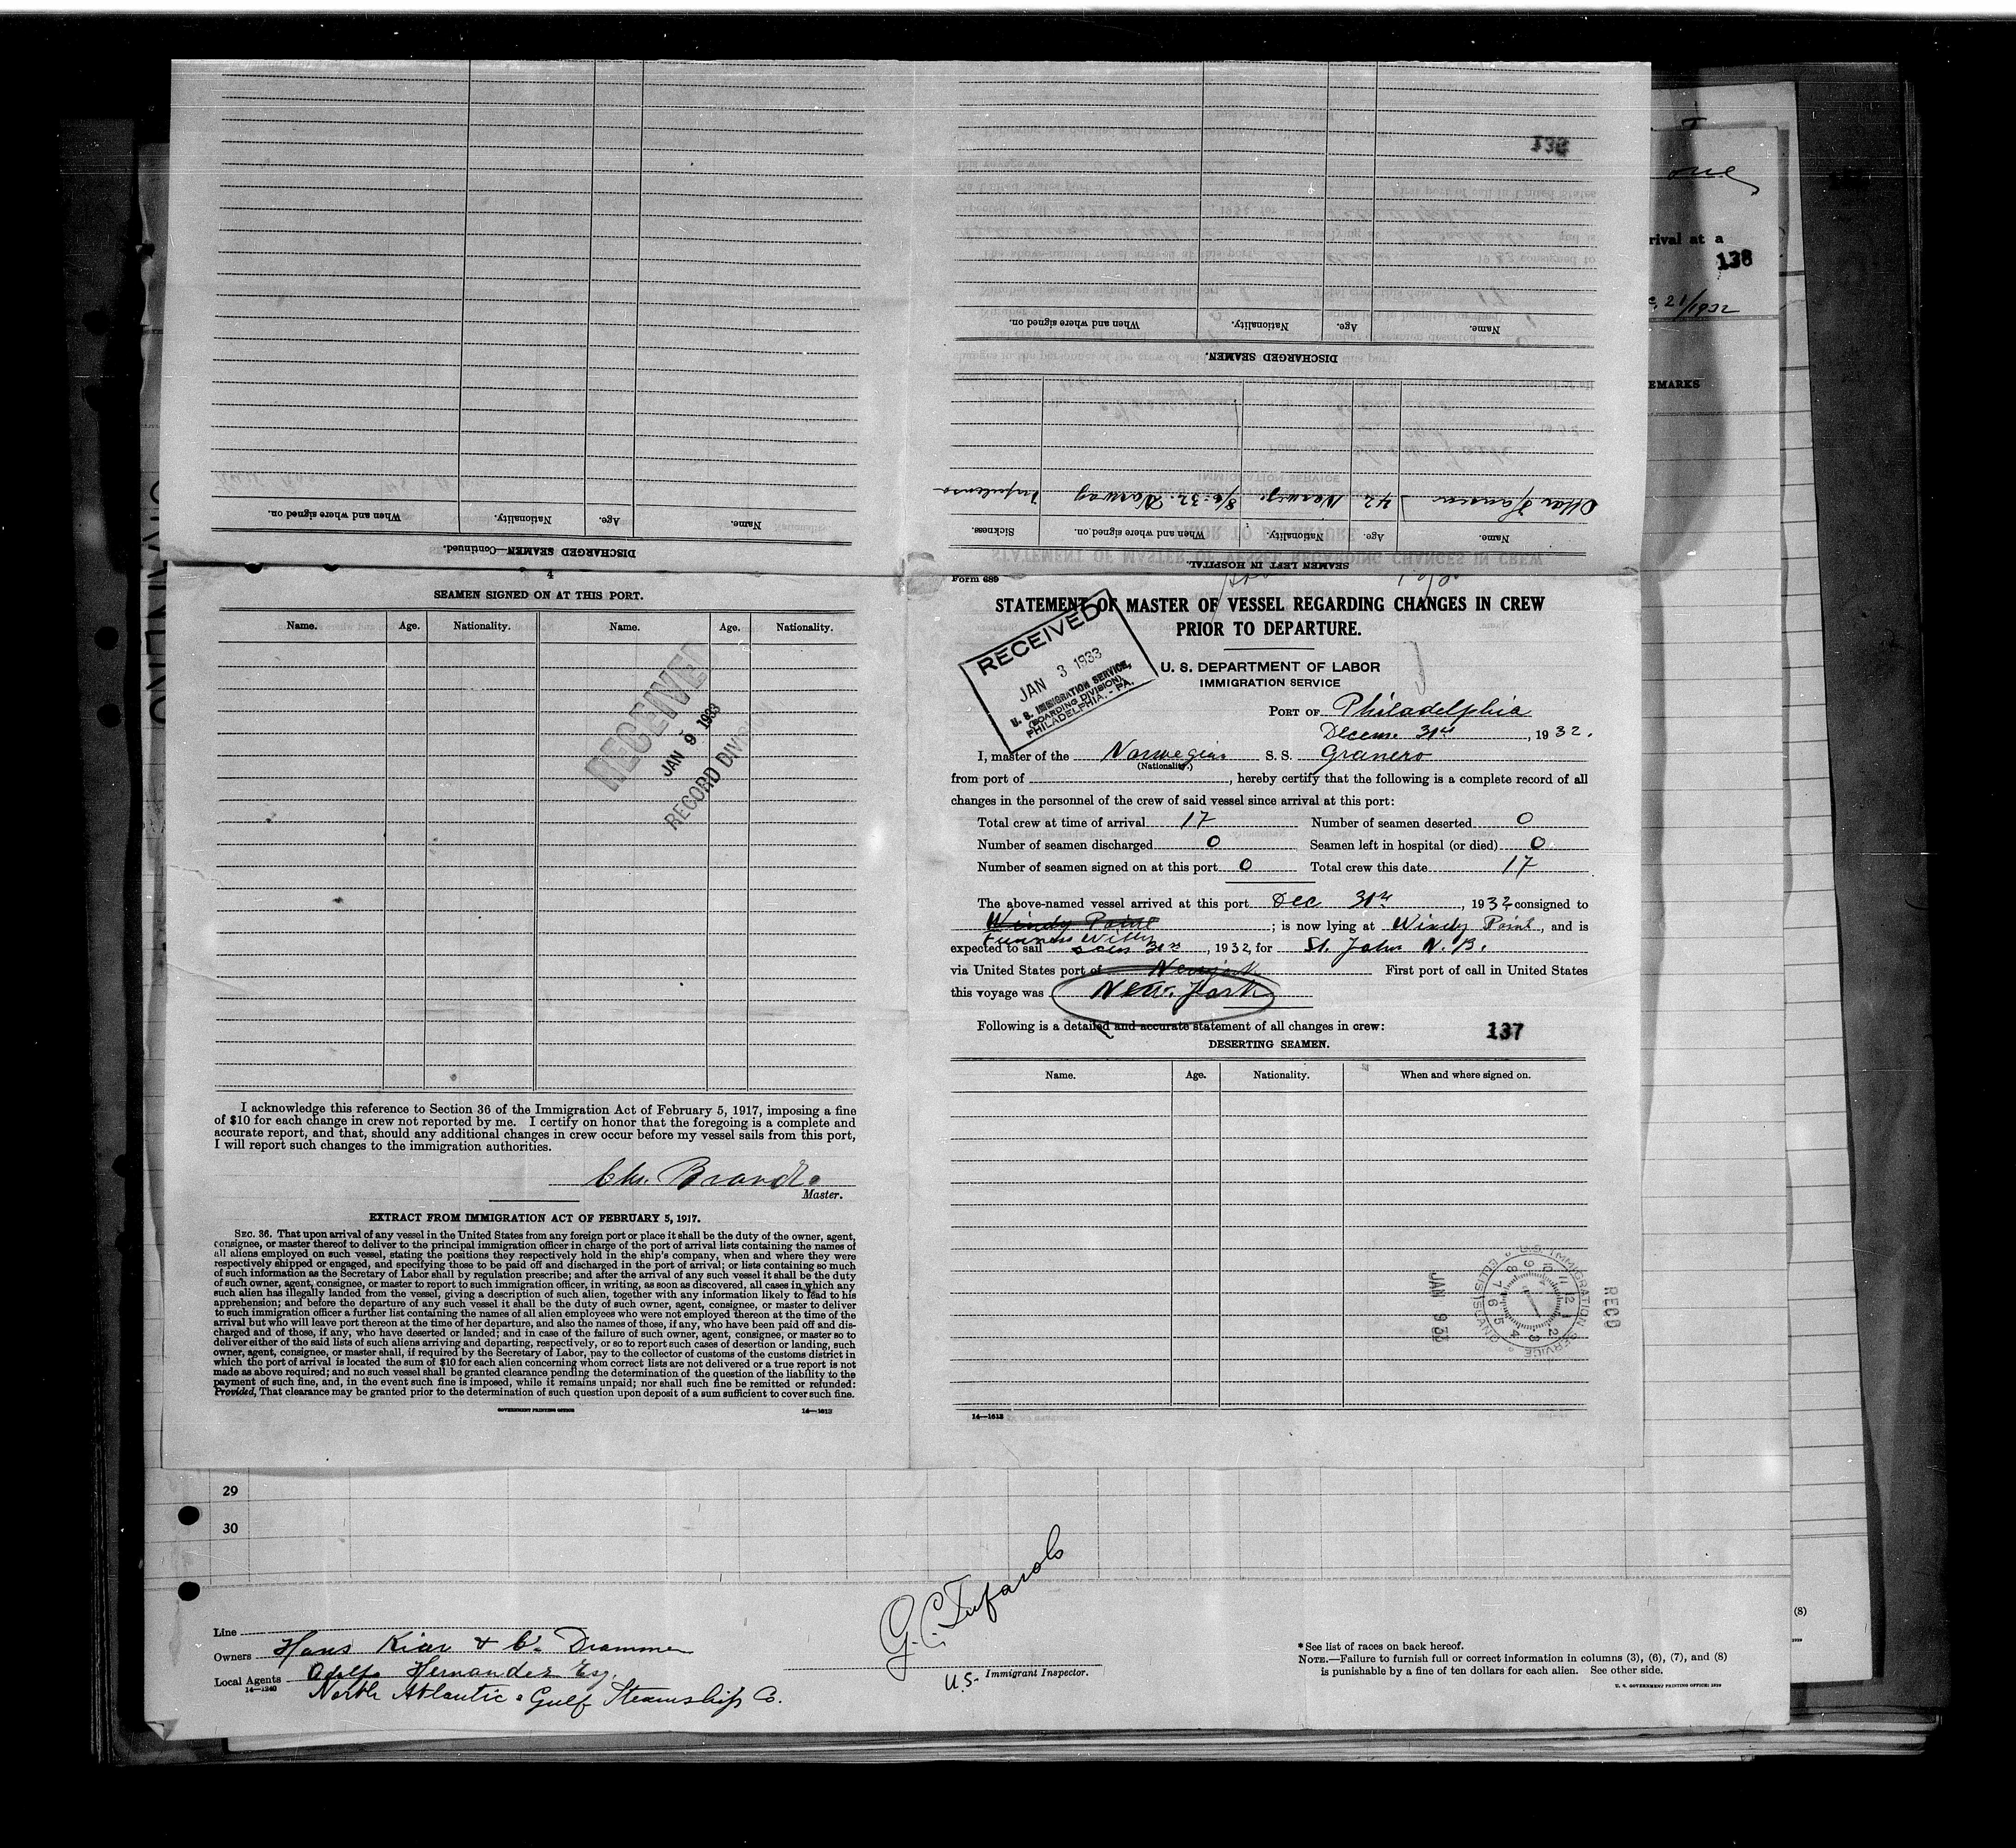 DISCHARGED SEAMEN—Continued.
Name. Age. Nationality. When and where signed on.
138
DISCHARGED SEAMEN.
Name. Age. Nationality. When and where signed on.
SEAMEN LEFT IN HOSPITAL.
Name. Age. Nationality. When and where signed on. Sickness.
Hansen 42 Norway 8/6-32. Norway
one
rival at a
138
21/1932
EMARKS
4
SEAMEN SIGNED ON AT THIS PORT.
Name. Age. Nationality. Name. Age. Nationality.
RECEIVED
JAN 9 1933
RECORD DIVISION
I acknowledge this reference to Section 36 of the Immigration Act of February 5, 1917, imposing a fine
of $10 for each change in crew not reported by me. I certify on honor that the foregoing is a complete and
accurate report, and that, should any additional changes in crew occur before my vessel sails from this port,
I will report such changes to the immigration authorities.
Chr. Brandt
Master.
EXTRACT FROM IMMIGRATION ACT OF FEBRUARY 5, 1917.
SEC. 36. That upon arrival of any vessel in the United States from any foreign port or place it shall be the duty of the owner, agent,
consignee, or master thereof to deliver to the principal immigration officer in charge of the port of arrival lists containing the names of
all aliens employed on such vessel, stating the positions they respectively hold in the ship's company, when and where they were
respectively shipped or engaged, and specifying those to be paid off and discharged in the port of arrival; or lists containing so much
of such information as the Secretary of Labor shall by regulation prescribe; and after the arrival of any such vessel it shall be the duty
of such owner, agent, consignee, or master to report to such immigration officer, in writing, as soon as discovered, all cases in which any
such alien has illegally landed from the vessel, giving a description of such alien, together with any information likely to lead to his
apprehension; and before the departure of any such vessel it shall be the duty of such owner, agent, consignee, or master to deliver
to such immigration officer a further list containing the names of all alien employees who were not employed thereon at the time of the
arrival but who will leave port thereon at the time of her departure, and also the names of those, if any, who have been paid off and dis-
charged and of those, if any, who have deserted or landed; and in case of the failure of such owner, agent, consignee, or master so to
deliver either of the said lists of such aliens arriving and departing, respectively, or so to report such cases of desertion or landing, such
owner, agent, consignee, or master shall, if required by the Secretary of Labor, pay to the collector of customs of the customs district in
which the port of arrival is located the sum of $10 for each alien concerning whom correct lists are not delivered or a true report is not
made as above required; and no such vessel shall be granted clearance pending the determination of the question of the liability to the
payment of such fine, and, in the event such fine is imposed, while it remains unpaid; nor shall such fine be remitted or refunded:
Provided, That clearance may be granted prior to the determination of such question upon deposit of a sum sufficient to cover such fine.
GOVERNMENT PRINTING OFFICE 14—1613
Form 689
STATEMENT OF MASTER OF VESSEL REGARDING CHANGES IN CREW
PRIOR TO DEPARTURE.
RECEIVED
JAN 3 1933
U. S. IMMIGRATION SERVICE,
(BOARDING DIVISION)
PHILADELPHIA, - PA.
U. S. DEPARTMENT OF LABOR
IMMIGRATION SERVICE
PORT OF Philadelphia
31st, 1932.
I, master of the Norwegian S. S. Granero
(Nationality.)
from port of , hereby certify that the following is a complete record of all
changes in the personnel of the crew of said vessel since arrival at this port:
Total crew at time of arrival 17 Number of seamen deserted 0
Number of seamen discharged 0 Seamen left in hospital (or died) 0
Number of seamen signed on at this port 0 Total crew this date 17
The above-named vessel arrived at this port Dec 31st, 1932 consigned to
Windy Point ; is now lying at Windy Point, and is
Furness Withy
expected to sail 31st, 1932, for St. John N. B.
via United States port of New York First port of call in United States
this voyage was New York
Following is a detailed and accurate statement of all changes in crew:
137
DESERTING SEAMEN.
Name. Age. Nationality. When and where signed on.
REC'D
U.S. IMMIGRATION SERVICE
ELLIS ISLAND
JAN 9 33
14—1613
29
30
Line
Owners Hans Kiær & Co. Drammen
Local Agents Adolfo Hernandez Esq.
14—1240
North Atlantic & Gulf Steamship Co.
U.S. Immigrant Inspector.
*See list of races on back hereof.
NOTE.—Failure to furnish full or correct information in columns (3), (6), (7), and (8)
is punishable by a fine of ten dollars for each alien. See other side.
U. S. GOVERNMENT PRINTING OFFICE: 1929
(8)